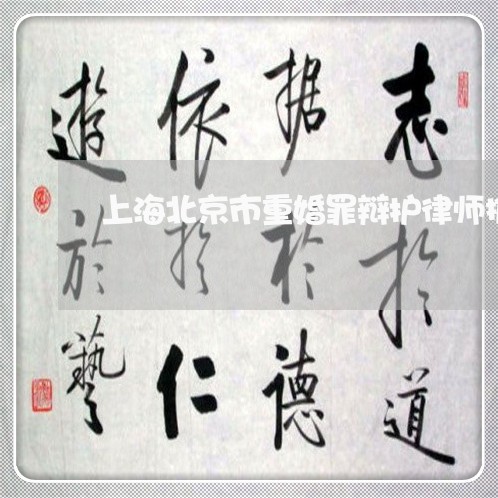 志於道
据於德
依於仁
遊於藝
上海北京市重婚罪辩护律师